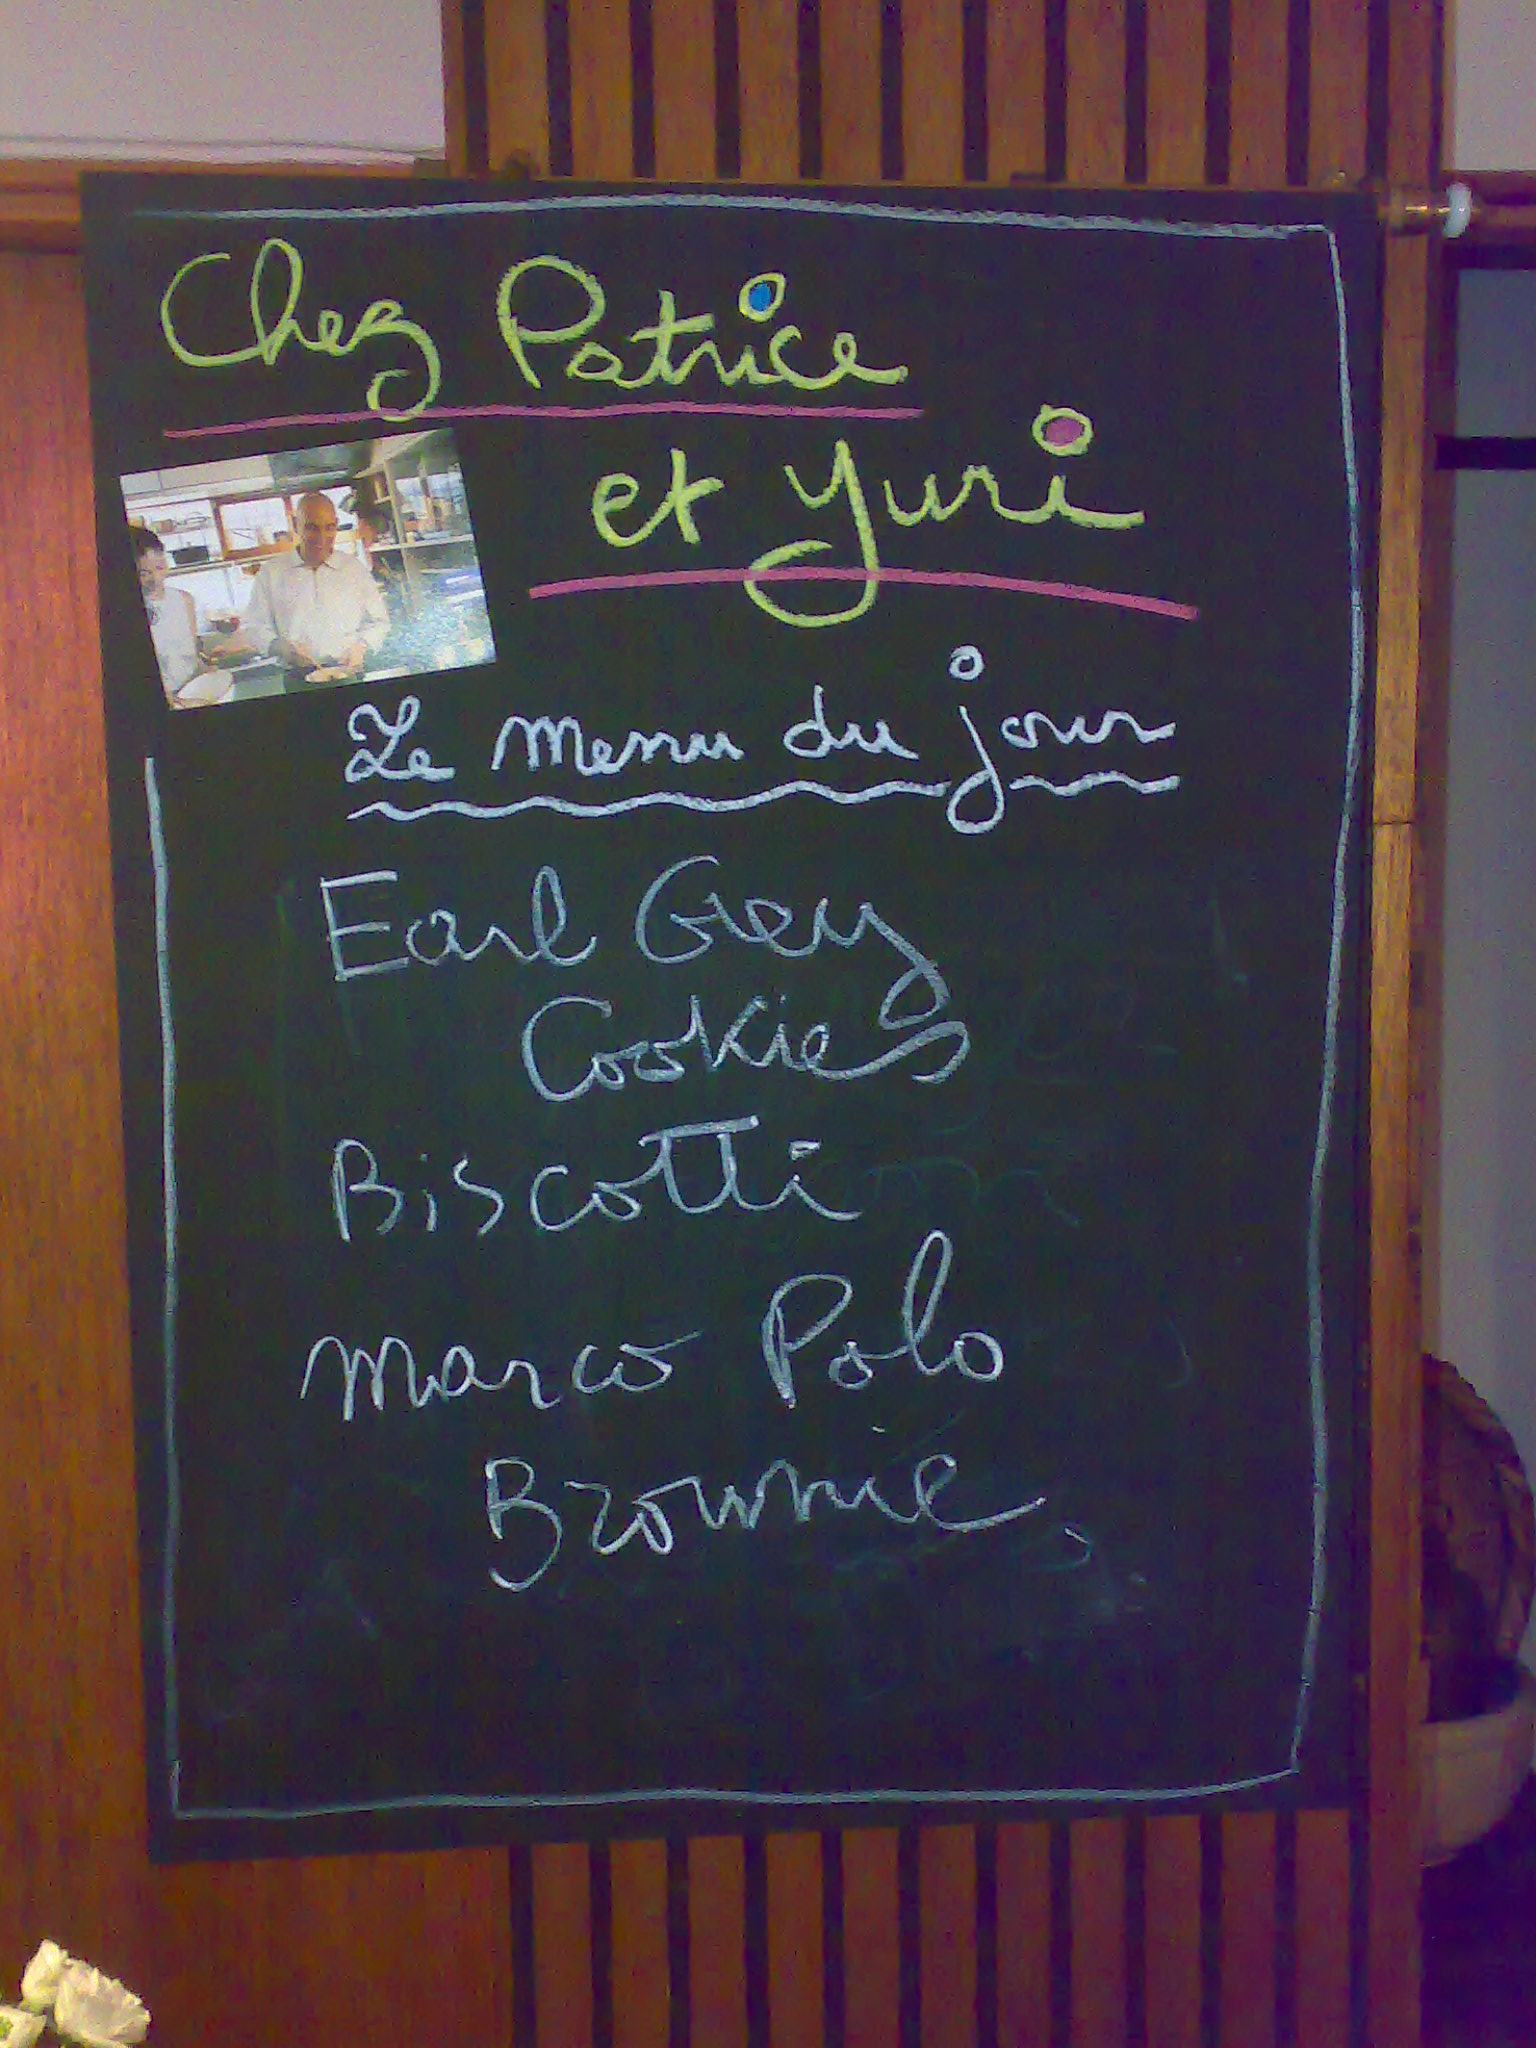 Chez Patrice
et Yuri
Le menu du jour
Earl Grey
Cookies
Biscotti
Marco Polo
Brownie